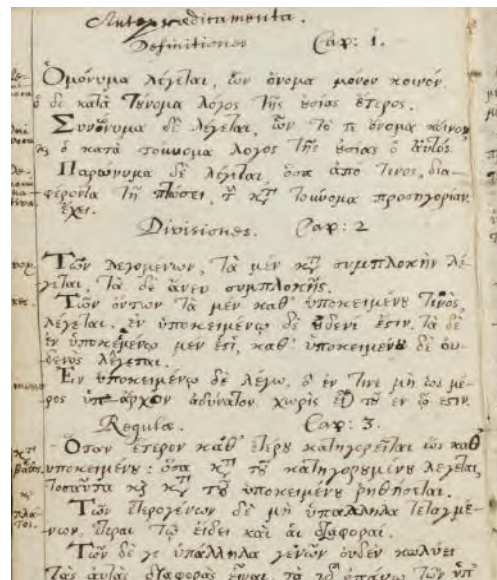 Antepraedicamenta.
Definitiones Cap: 1.
Ὁμόνυμα λέγεται, ὧν ὄνομα μόνον κοινόν,
ὁ δὲ κατὰ τοὔνομα λόγος τῆς οὐσίας ἕτερος.
Συνώνυμα δὲ λέγεται, ὧν τό τε ὄνομα κοινον,
καὶ ὁ κατὰ τοὔνομα λόγος τῆς οὐσίας ὁ αὐτός.
Παρώνυμα δὲ λέγεται, ὅσα ἀπο τινος, δια-
φέροντα τῇ πτώσει, τὴν κατὰ τοὔνομα προσηγορίαν
ἔχει.
Divisiones. Cap: 2
Τῶν λεγομενων, τὰ μέν κατὰ συμπλοκὴν λέ-
γεται, τὰ δὲ ἄνευ συμπλοκῆς.
Τῶν ὄντων τὰ μὲν καθ' ὑποκειμένου τινὸς
λέγεται, ἐν ὑποκειμένῳ δὲ οὐδενί ἐστιν. τὰ δὲ
ἐν ὑποκειμένῳ μέν ἐστι, καθ' ὑποκειμένου δὲ οὐ-
δενος λέγεται.
Ἐν ὑποκειμένῳ δὲ λέγω, ὃ ἐν τινι μὴ ὡς μέ-
ρος ὑπάρχον ἀδύνατον χωρὶς εἶναι τοῦ ἐν ᾧ ἐστιν.
Regulae. Cap: 3.
Ὅταν ἕτερον καθ' ἑτέρου κατηγορεῖται ὡς καθ'
ὑποκειμένου: ὅσα κατὰ τοῦ κατηγορουμένου λέγεται,
τοσαῦτα καὶ κατὰ τοῦ ὑποκειμένου ῥηθήσεται.
Τῶν ἑτερογένων δὲ μὴ ὑπάλληλα τεταγμέ-
νων, ἕτεραι τῷ εἴδει καὶ αἱ διαφοραί.
Τῶν δέ γε ὑπάλληλα γενῶν οὐδὲν κωλύει
τὰς αὐτὰς διαφορας εἶναι, τὰ γὰρ ἐπάνω τῶν ὑπ'